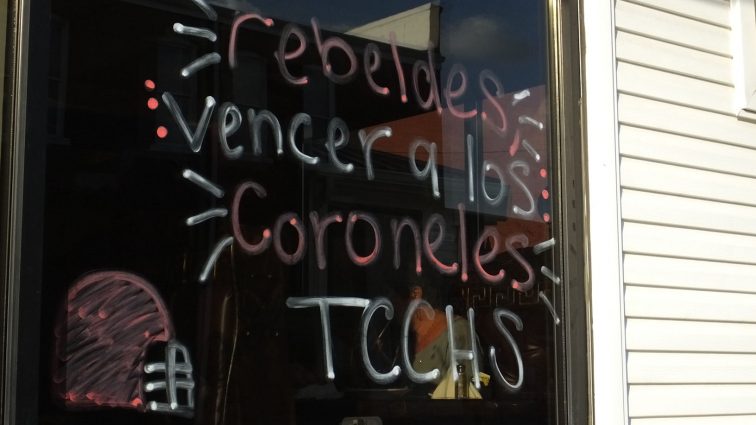 rebeldes,
vencer a los
Coroneles
TCCHS